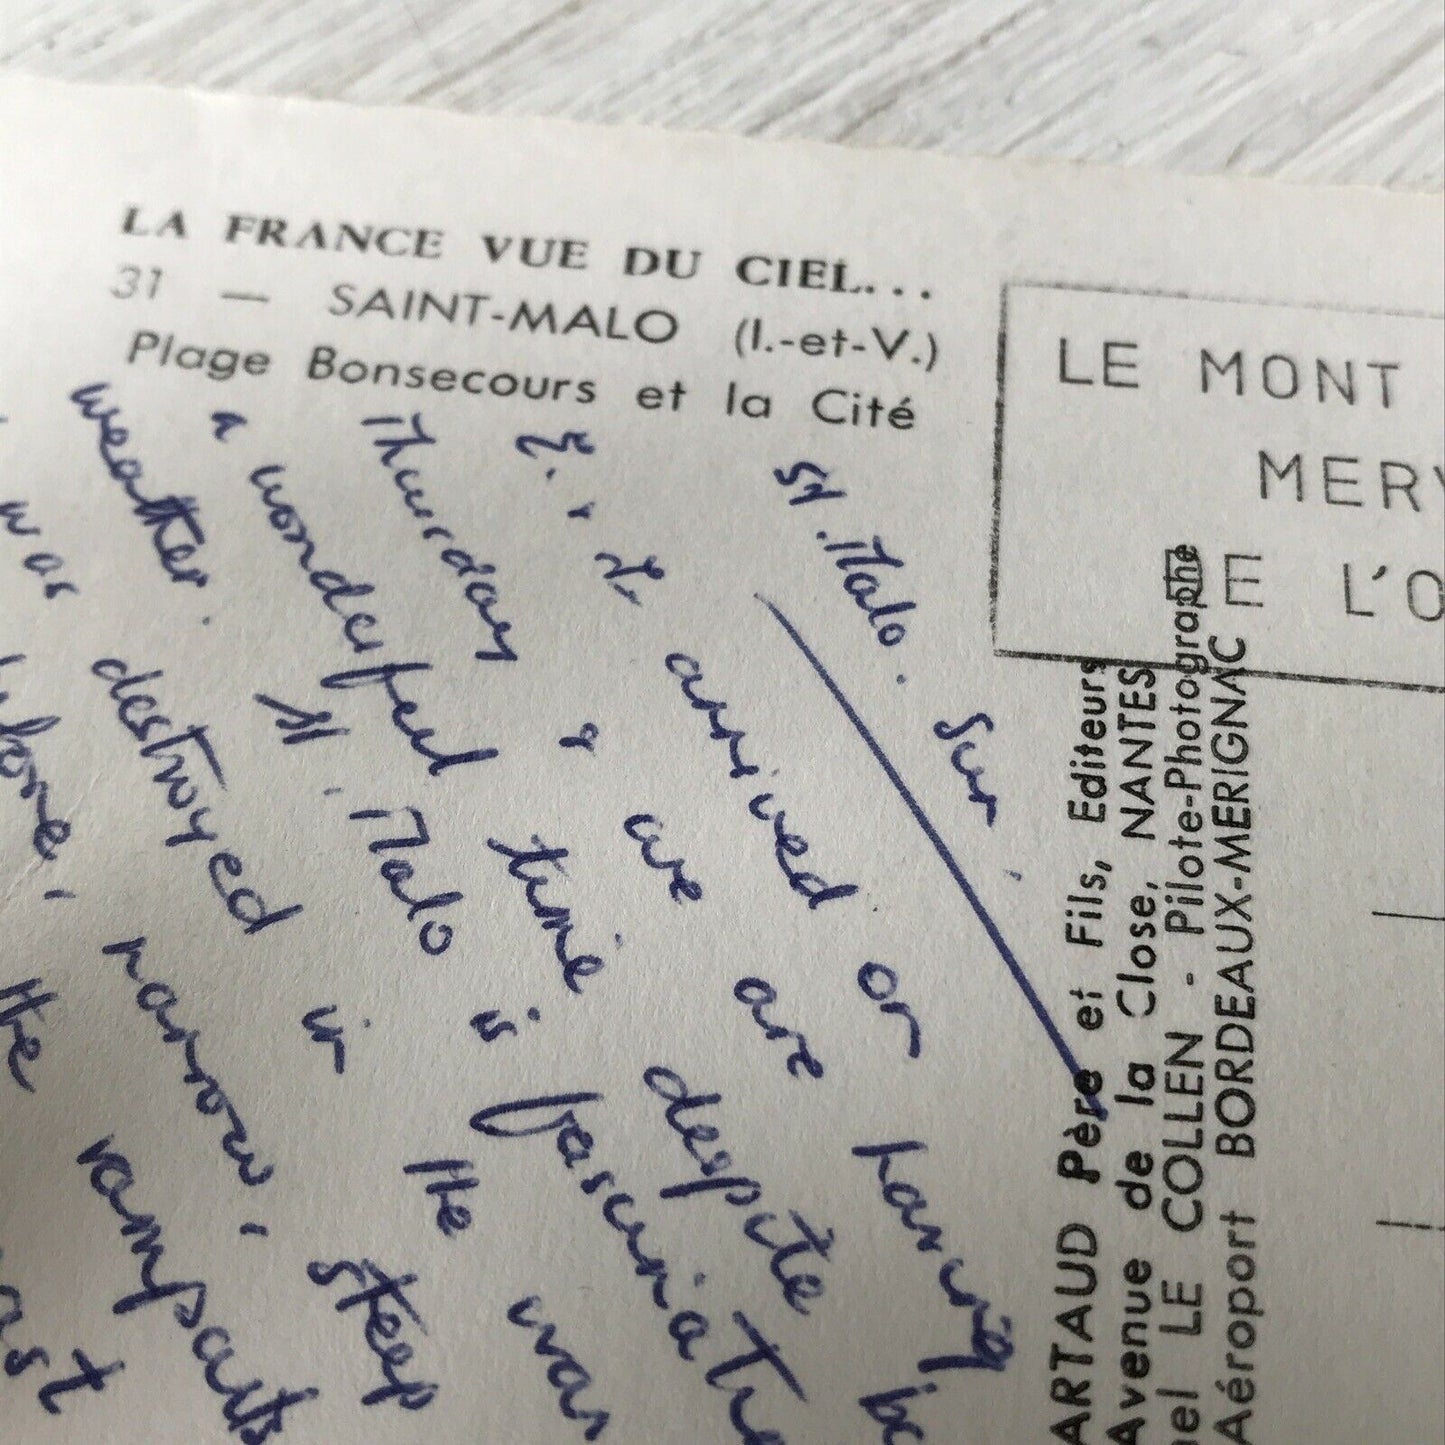 LA FRANCE VUE DU CIEL...
31 — SAINT-MALO (I.-et-V.)
Plage Bonsecours et la Cité
LE MONT
MERV
E L'O
St. Malo. Sun.
arrived on
Thursday & we are having
a wonderful time despite
weather. St. Malo is fascinatin
was destroyed in the war
narrow, steep
the ramparts
ARTAUD Père et Fils, Editeurs
Avenue de la Close, NANTES
el LE COLLEN - Pilote-Photographe
Aéroport BORDEAUX-MERIGNAC